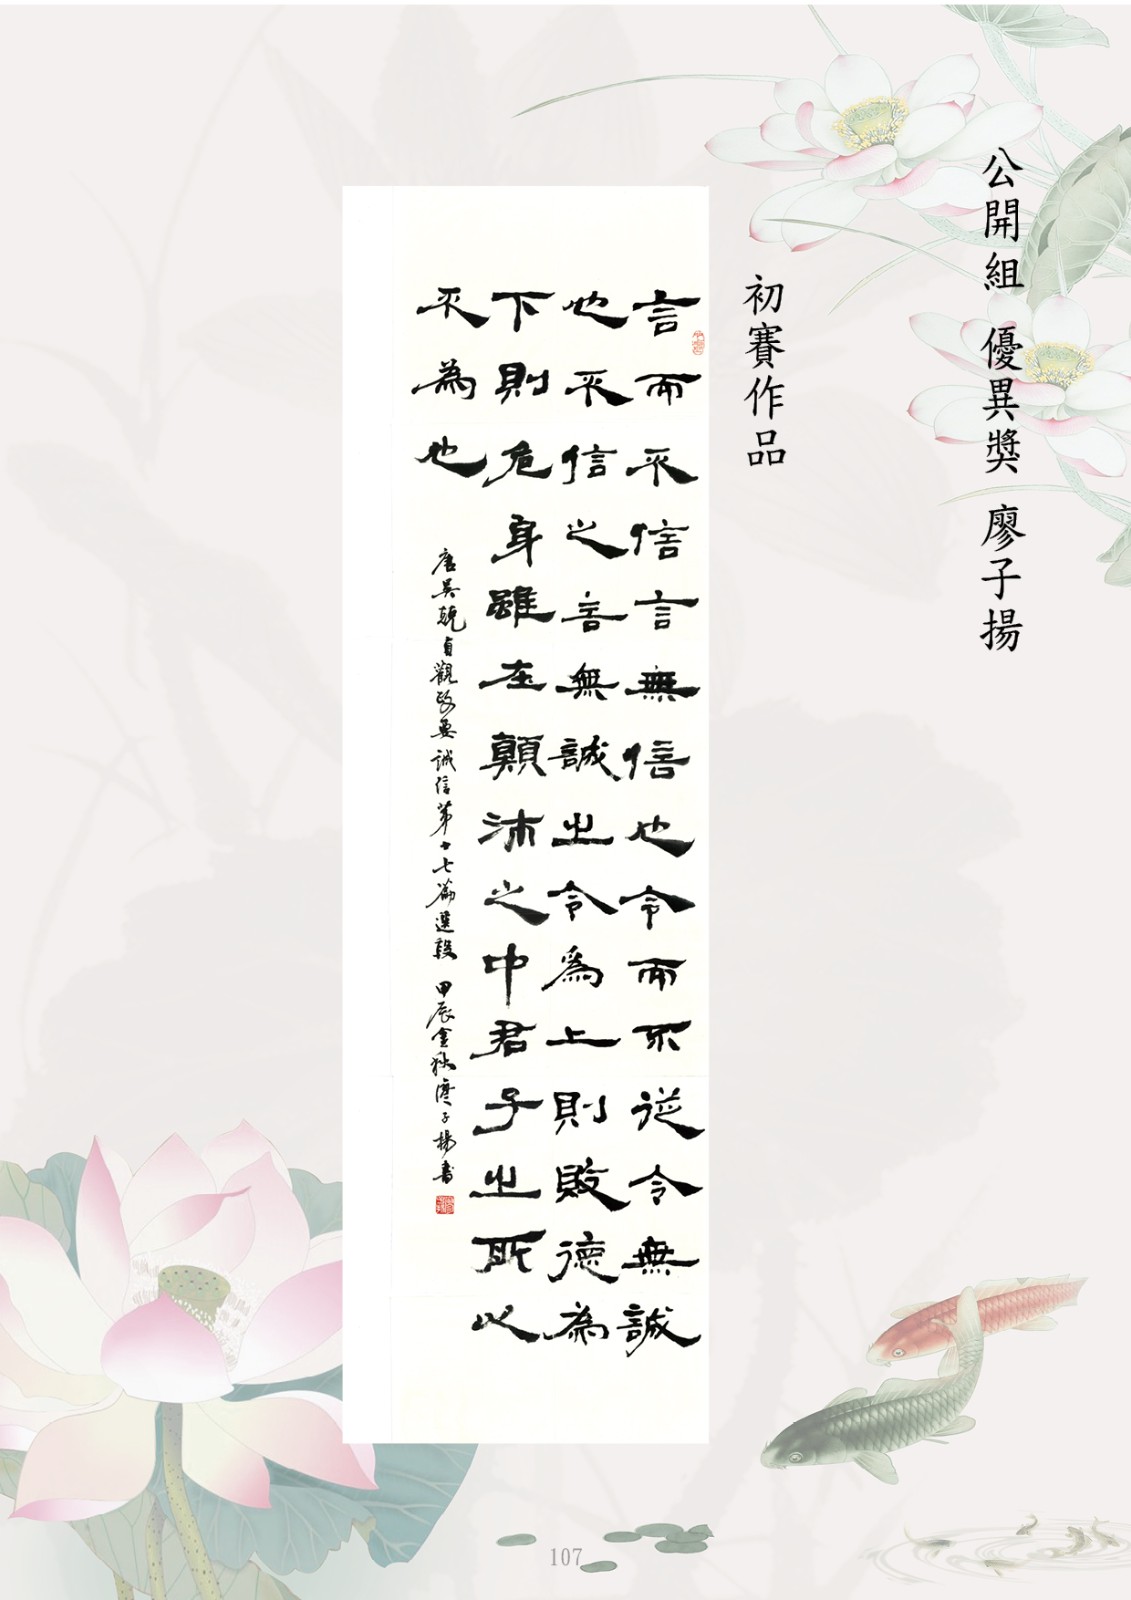 公開組 優異獎 廖子揚
初賽作品
言而不信言無信也令而不從令無誠
也不信之言無誠之令爲上則敗德為
下則危身雖在顛沛之中君子之所以
不為也
唐吳兢貞觀政要誠信第十七篇選段 甲辰金秋廖子揚書
107